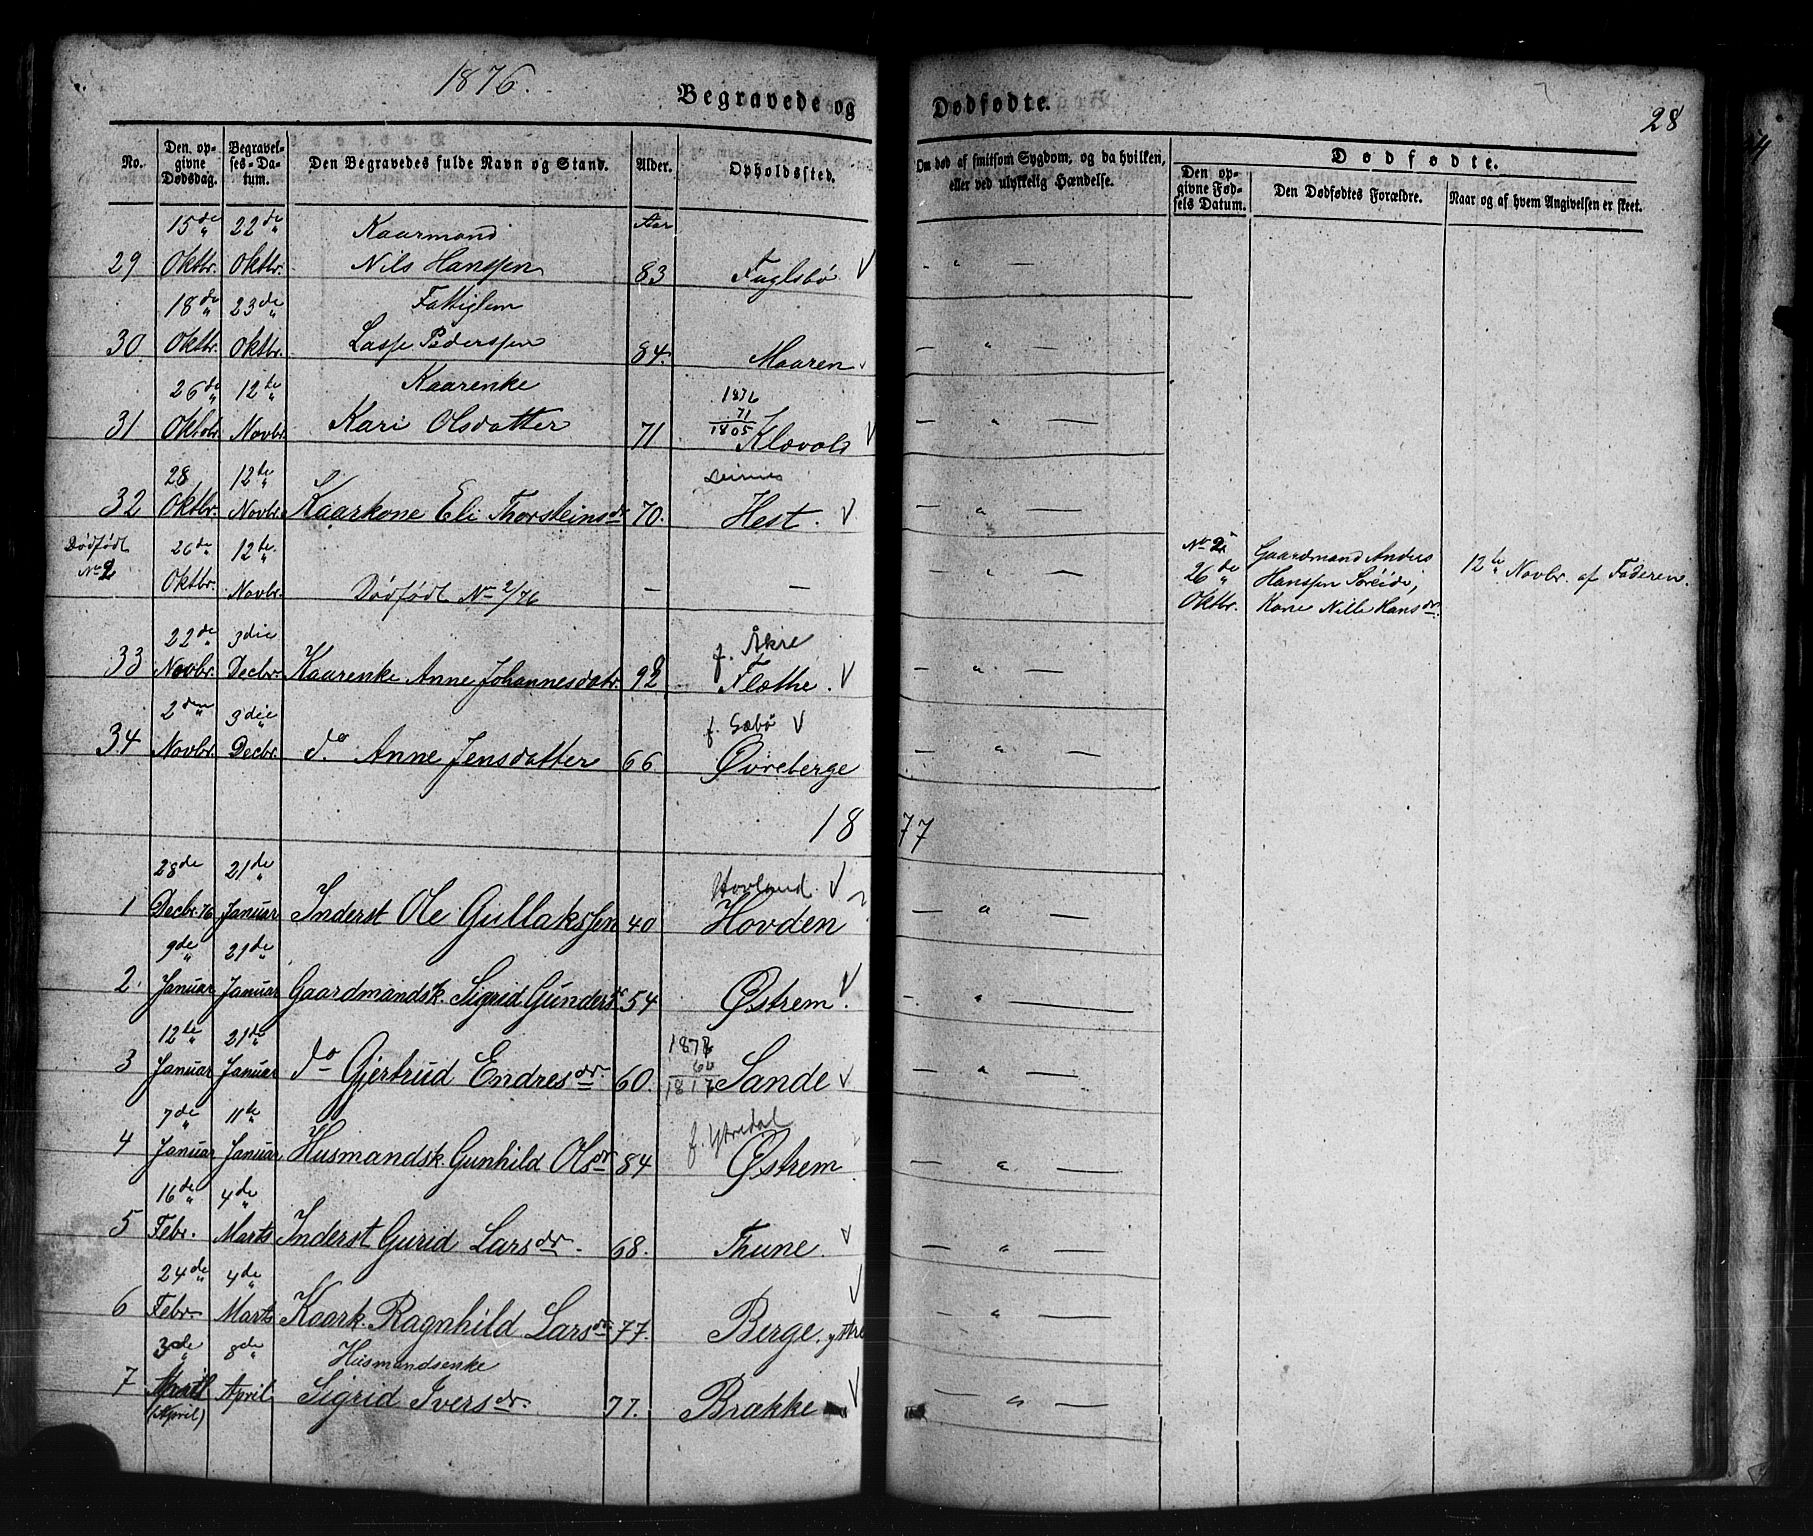 1876.
Begravede og Dødfødte.
28
No.
Den opgivne Dødsdag.
Begravelses-Datum.
Den Begravedes fulde Navn og Stand.
Alder.
Opholdssted.
Om død af smitsom Sygdom, og da hvilken, eller ved ulykkelig Hændelse.
Dødfødte.
Den opgivne Fødsels Datum.
Den Dødfødtes Forældre.
Naar og af hvem Angivelsen er skeet.
15de 22de Kaarmand Aar
29 Oktbr. Oktbr. Nils Hanssen 83 Fuglsbø √ - " —
18de 23de Fattiglem
30 Oktbr. Oktbr. Lasse Pederssen 84. Maaren √ — " —
26de 12te Kaarenke 1876
71
31 Oktbr. Novbr. Kari Olsdatter 71 1805 Klævold √ — " —
28 12te Leirnes
32 Oktbr. Novbr. Kaarkone Eli Thorsteinsdr 70. Hest. √ — " —
Dødfødt 26de 12te
No 2 Oktbr. Novbr. Dødfødt No 2/76 — — " —
No 2 Gaardmand Anders
26de Hanssen Søreide, 12te Novbr. af Faderen.
Oktbr. Kone Nille Hansdr.
22de 3die f. Åkre
33 Novbr. Decbr. Kaarenke Anne Johannesdatr. 92 Flæthe. √ - " —
2den 3die f. Sæbø √
34 Novbr. Decbr. do Anne Jensdatter 66 Øvreberge - " —
1877
28de 21de Hovland. √
1 Decbr. 76 Januar Inderst Ole Gullakssen 40 Hovden — " —
9de 21de
2. Januar Januar Gaardmandsk. Sigrid Gundersd 54 Østrem. √ - " —
12te 21de 1876
60
3 Januar Januar do Gjertrud Endresdr. 60. 1817 Sande √ — " —
7de 11te f. Ytredal
4 Januar Januar Husmandsk. Gunhild Olsdr 84 Østrem — " —
16de 4de
5 Febr. Marts Inderst Gurid Larsdr. 68. Thune. √ — " —
24de 4de
6 Febr. Marts Kaark. Ragnhild Larsdr 77. Berge. ystre √ — " —
3de 8de Husmandsenke
7 April April Sigrid Iversdr. 77. Brække √ — " —
(April)